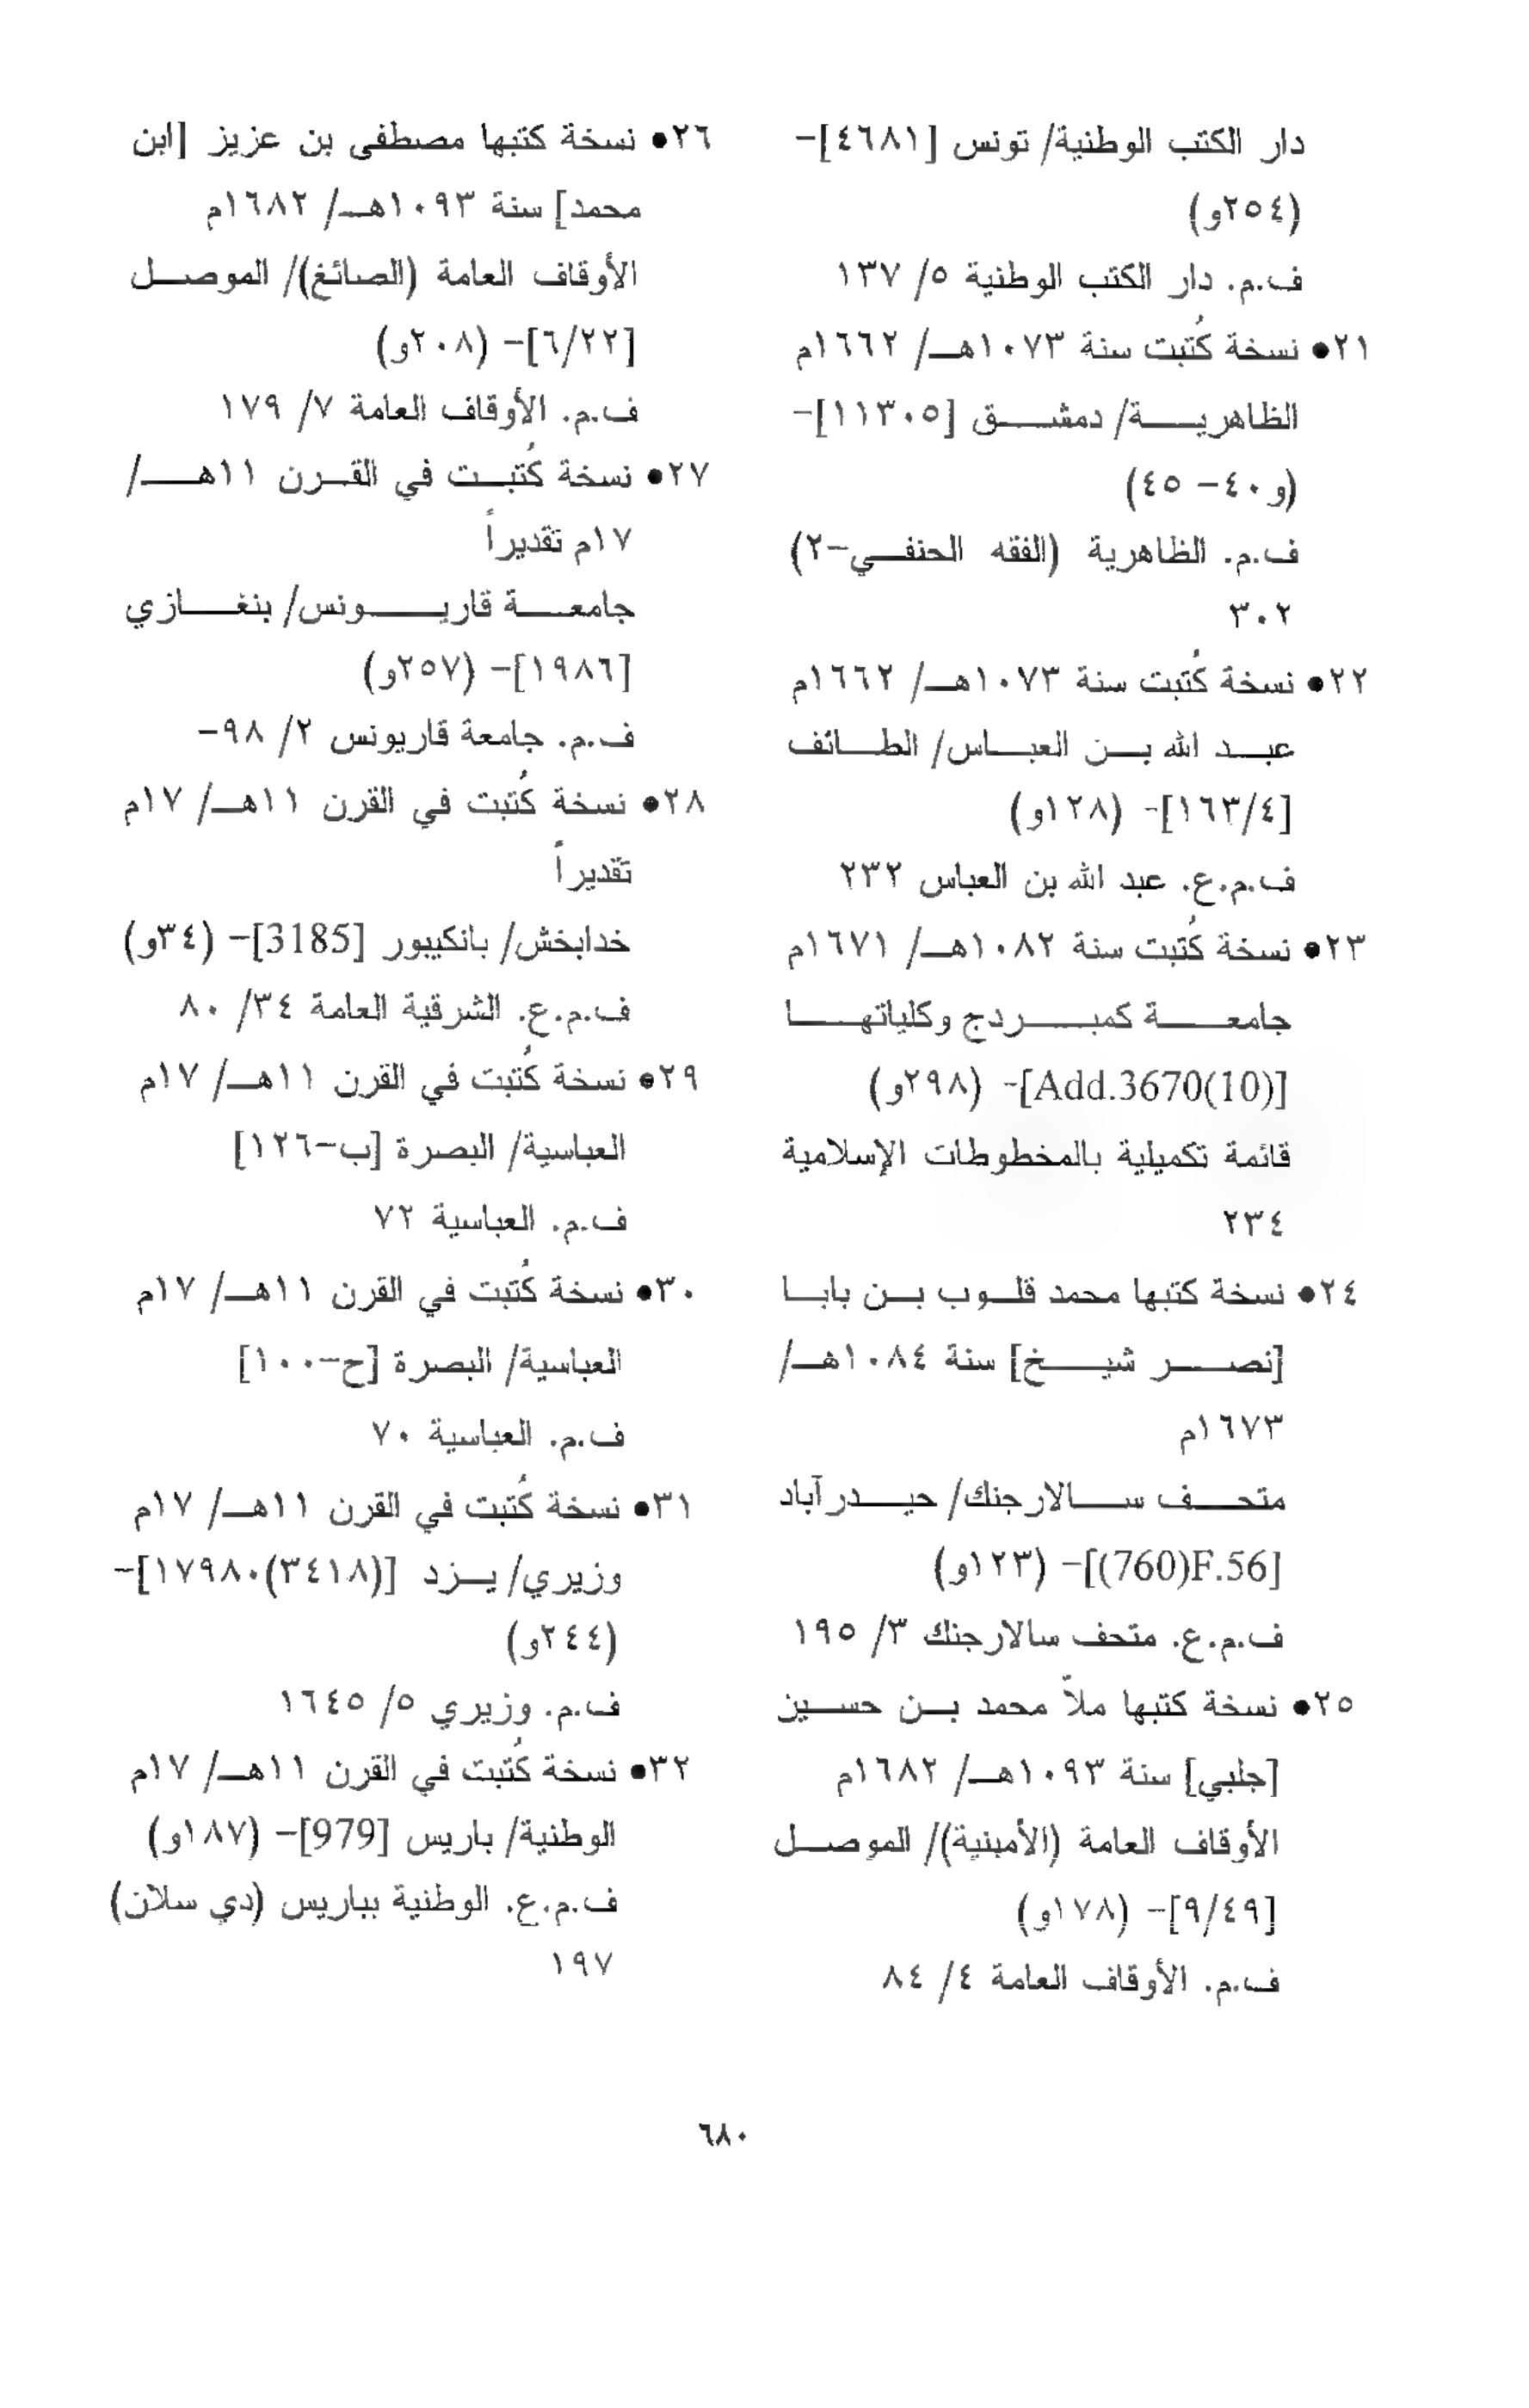 دار الكتب الوطنية/ تونس [٤٦٨١]-
(٢٥٤و)
ف.م. دار الكتب الوطنية ٥/ ١٣٧
٢١• نسخة كُتبت سنة ١٠٧٣هـ/ ١٦٦٢م
الظاهرية/ دمشق [١١٣٠٥]-
(و٤٠- ٤٥)
ف.م. الظاهرية (الفقه الحنفي-٢)
٣٠٢
٢٢• نسخة كُتبت سنة ١٠٧٣هـ/ ١٦٦٢م
عبد الله بن العباس/ الطائف
[١٦٣/٤]- (١٢٨و)
ف.م.ع. عبد الله بن العباس ٢٣٢
٢٣• نسخة كُتبت سنة ١٠٨٢هـ/ ١٦٧١م
جامعة كمبردج وكلياتها
[Add.3670(10)]- (٢٩٨و)
قائمة تكميلية بالمخطوطات الإسلامية
٢٣٤
٢٤• نسخة كتبها محمد قلوب بن بابا
[نصر شيخ] سنة ١٠٨٤هـ/
١٦٧٣م
متحف سالارجنك/ حيدرآباد
[(760)F.56]- (١٢٣و)
ف.م.ع. متحف سالارجنك ٣/ ١٩٥
٢٥• نسخة كتبها ملاّ محمد بن حسين
[جلبي] سنة ١٠٩٣هـ/ ١٦٨٢م
الأوقاف العامة (الأمينية)/ الموصل
[٩/٤٩]- (١٧٨و)
ف.م. الأوقاف العامة ٤/ ٨٤
٢٦• نسخة كتبها مصطفى بن عزيز [ابن
محمد] سنة ١٠٩٣هـ/ ١٦٨٢م
الأوقاف العامة (الصائغ)/ الموصل
[٦/٢٢]- (٢٠٨و)
ف.م. الأوقاف العامة ٧/ ١٧٩
٢٧• نسخة كُتبت في القرن ١١هـ/
١٧م تقديراً
جامعة قاريونس/ بنغازي
[١٩٨٦]- (٢٥٧و)
ف.م. جامعة قاريونس ٢/ ٩٨-
٢٨• نسخة كُتبت في القرن ١١هـ/ ١٧م
تقديراً
خدابخش/ بانكيبور [3185]- (٣٤و)
ف.م.ع. الشرقية العامة ٣٤/ ٨٠
٢٩• نسخة كُتبت في القرن ١١هـ/ ١٧م
العباسية/ البصرة [ب-١٢٦]
ف.م. العباسية ٧٢
٣٠• نسخة كُتبت في القرن ١١هـ/ ١٧م
العباسية/ البصرة [ح-١٠٠]
ف.م. العباسية ٧٠
٣١• نسخة كُتبت في القرن ١١هـ/ ١٧م
وزيري/ يزد [(٣٤١٨)١٧٩٨٠]-
(٢٤٤و)
ف.م. وزيري ٥/ ١٦٤٥
٣٢• نسخة كُتبت في القرن ١١هـ/ ١٧م
الوطنية/ باريس [979]- (١٨٧و)
ف.م.ع. الوطنية بباريس (دي سلان)
١٩٧
٦٨٠